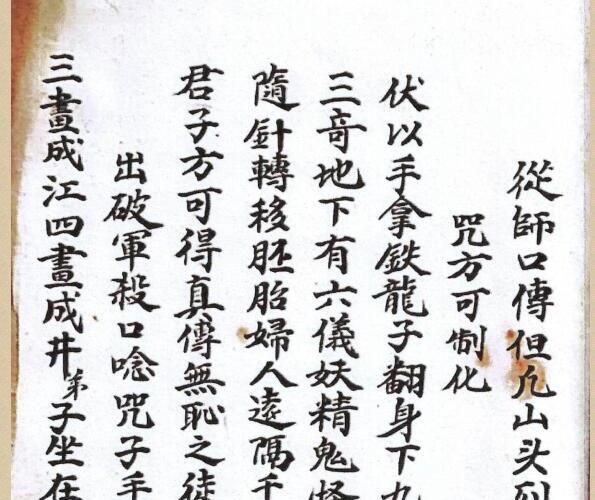 從師口傳但凡山头到
咒方可制化
伏以手拿鉄龍子翻身下九
三竒地下有六儀妖精鬼怪
隨針轉移胚胎婦人遠隔千
君子方可得真傳無恥之徒
出破軍殺口唸咒子手
三畫成江四畫成井弟子坐在